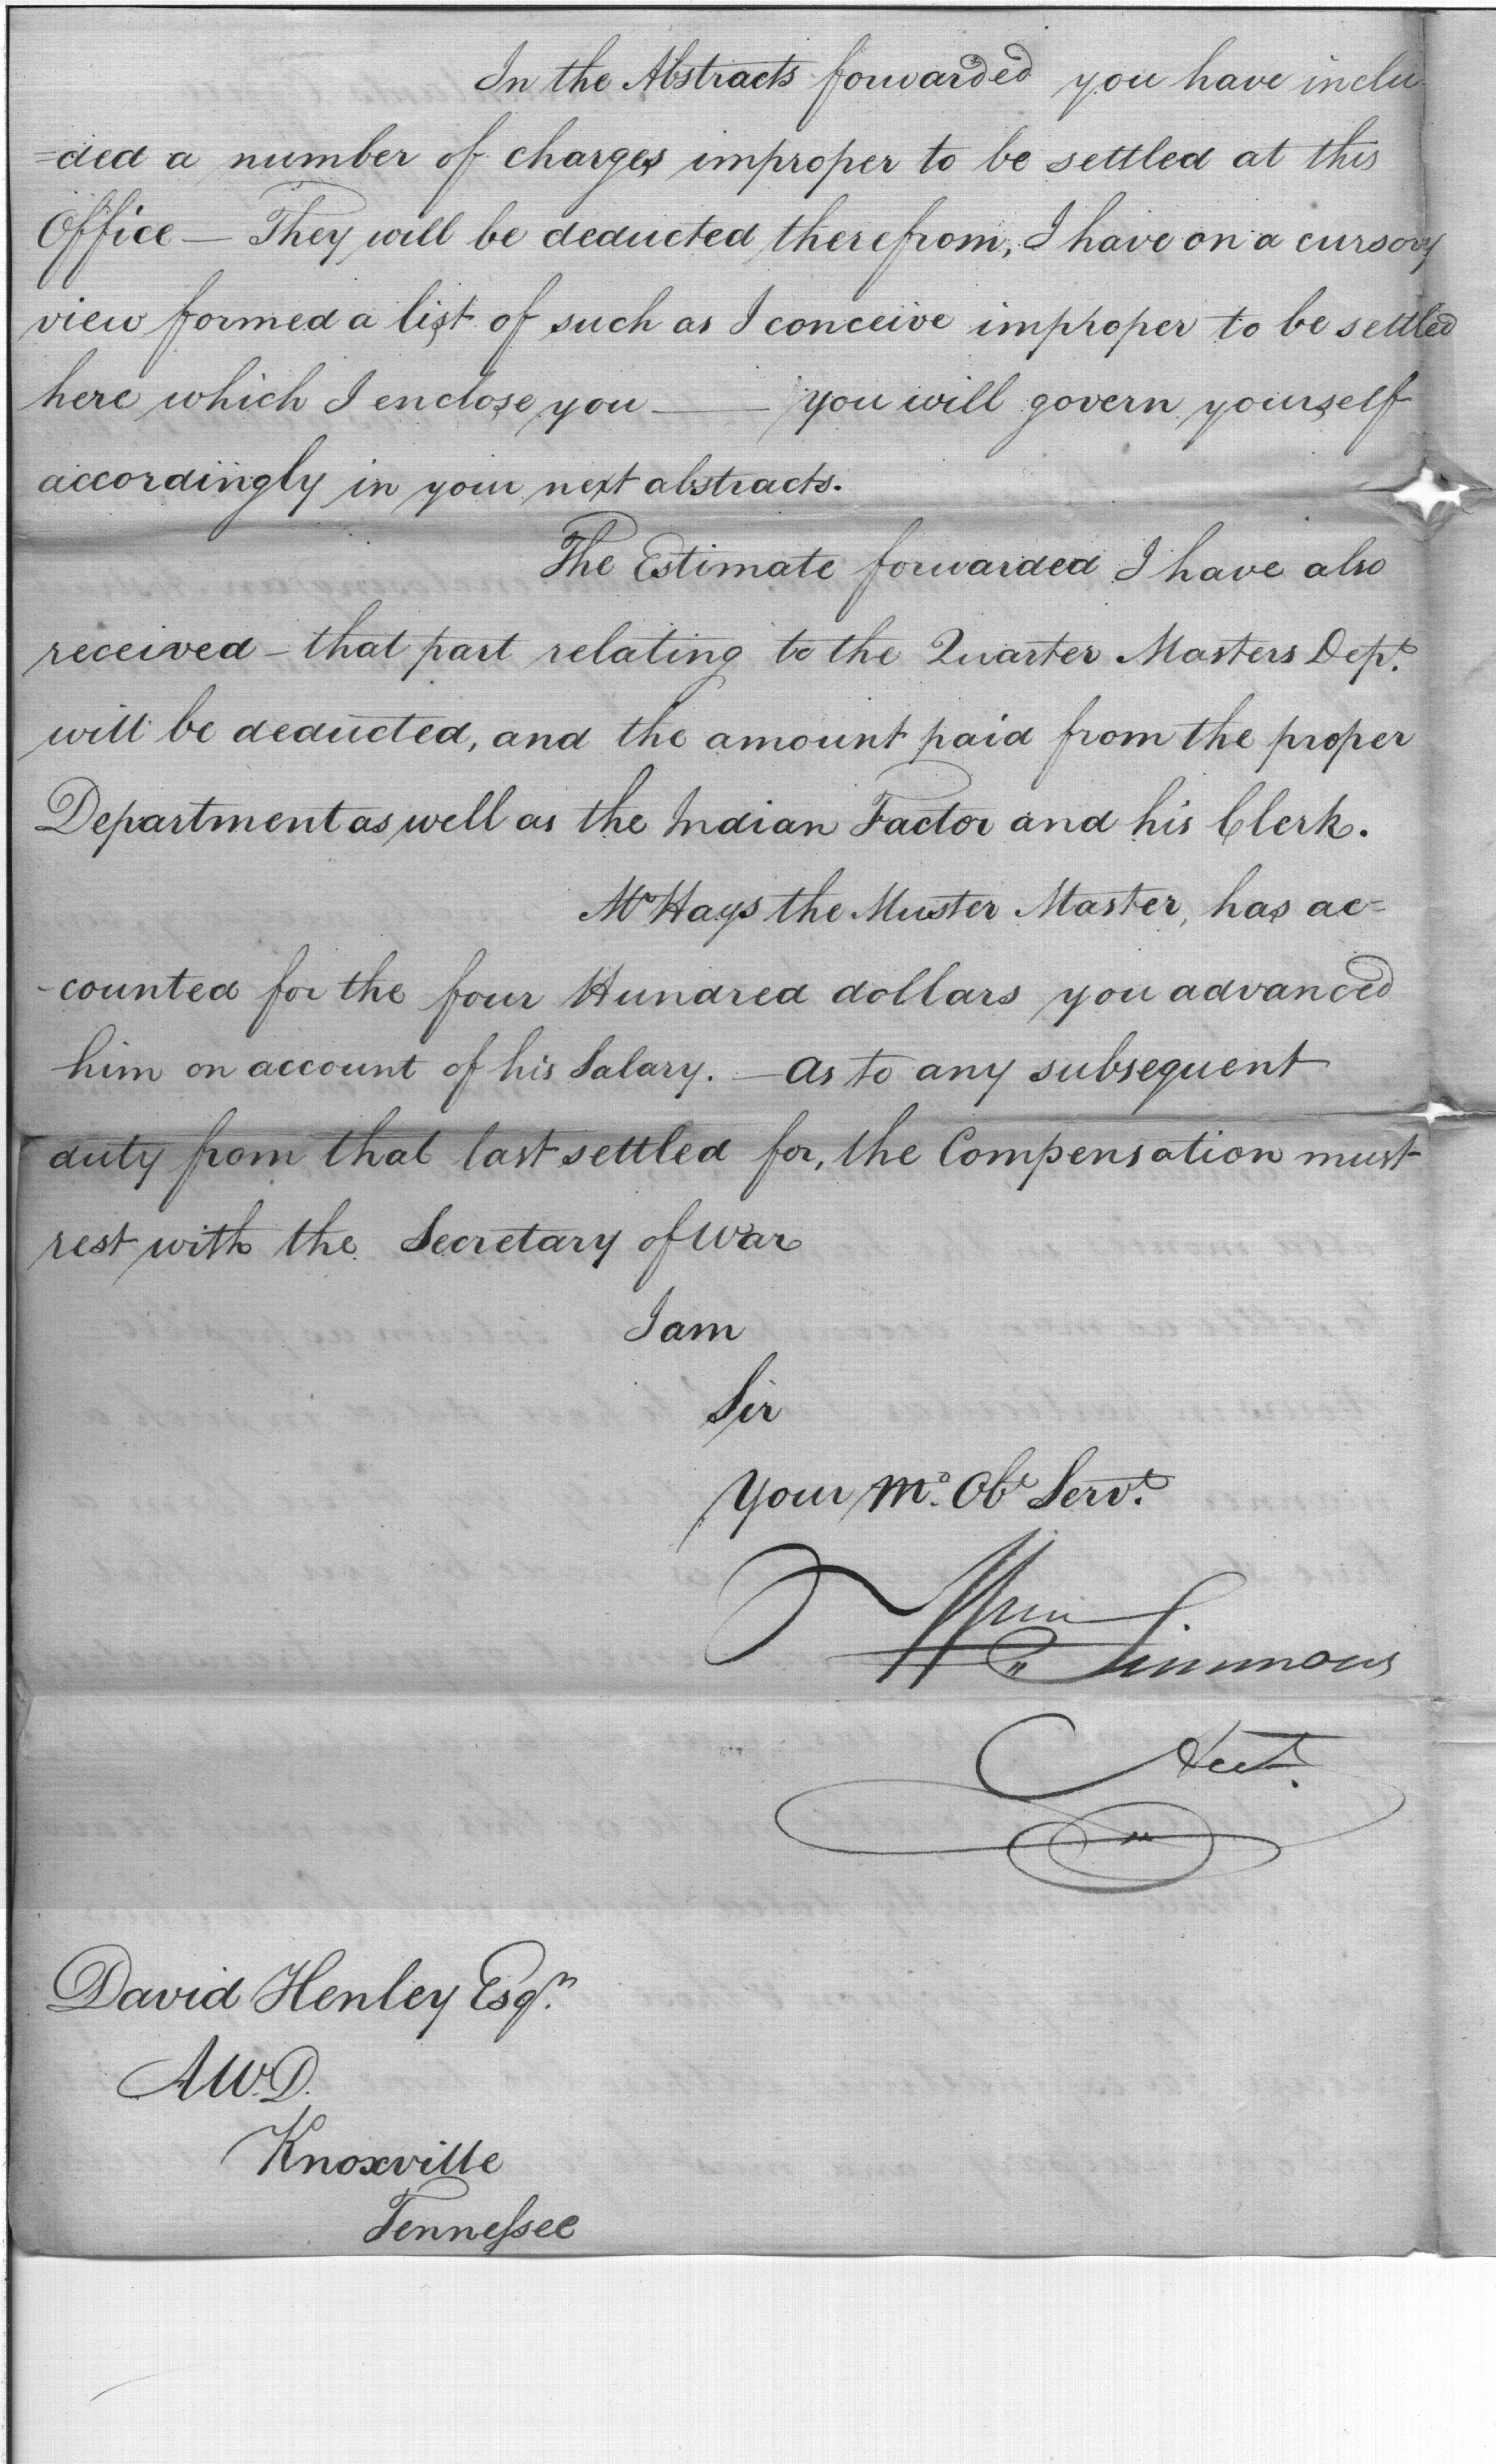 In the Abstracts forwarded you have inclu-
=ded a number of charges improper to be settled at this
Office — They will be deducted therefrom, I have on a cursory
view formed a list of such as I conceive improper to be settled
here which I enclose you —— you will govern yourself
accordingly in your next abstracts.
The Estimate forwarded I have also
received – that part relating to the Quarter Masters Dept.
will be deducted, and the amount paid from the proper
Department as well as the Indian Factor and his Clerk.
Mr Hays the Muster Master, has ac=
-counted for the four Hundred dollars you advanced
him on account of his Salary. — As to any subsequent
duty from that last settled for, the Compensation must
rest with the Secretary of War
I am
Sir
Your Mo. Obt Servt.
Wm Simmons
Acct.
David Henley Esqr.
A.W.D.
Knoxville
Tennessee